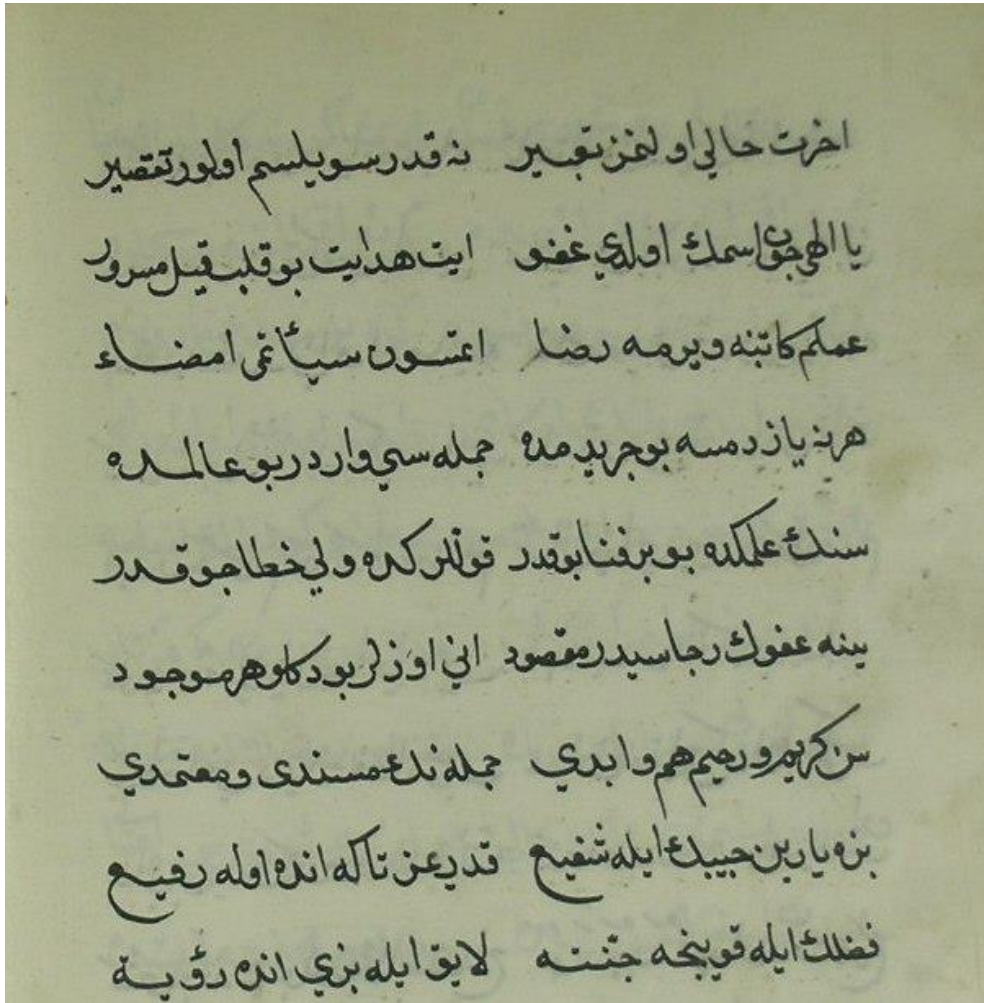 اخرت حالي اولنمز تعبير نه قدر سويلسم اولور تقصير
يا الهي چون اسمك اولدي غفور ايت هدايت بو قلب قيل مسرور
عملم كاتبنه ويرمه رضا اتمسون سيأتمى امضاء
هرنه يازدمسه بو جريدمده جمله سي واردر بو عالمده
سنك علمكده بو بر فنا بو قدر قوللركده ولي خطا چوقدر
ينه عفوك رجاسيدر مقصود اني اوزلر بودكلو هر موجود
سن كريم و رحيم هم وابدي جمله نك مسندى و معتمدي
بزه يارين حبيبك ايله شفيع قدريمز تاكه انده اوله رفيع
فضلك ايله قوينجه جنته لايق ايله بزي انده رؤيته